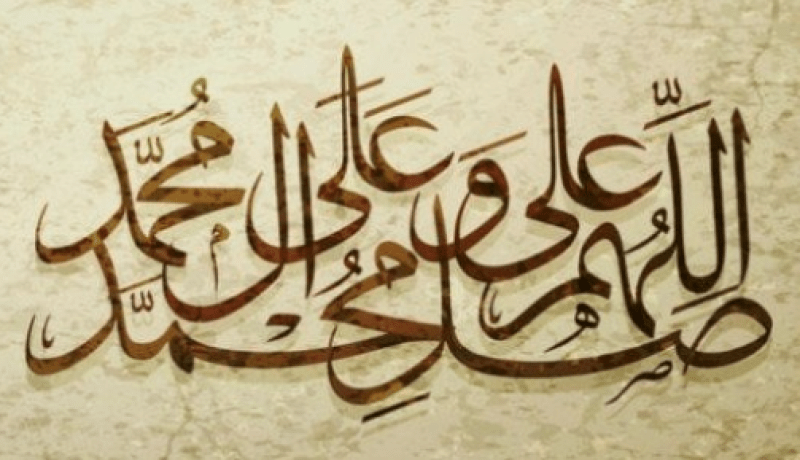 اللّهم صل على محمّد و على ال محمّد